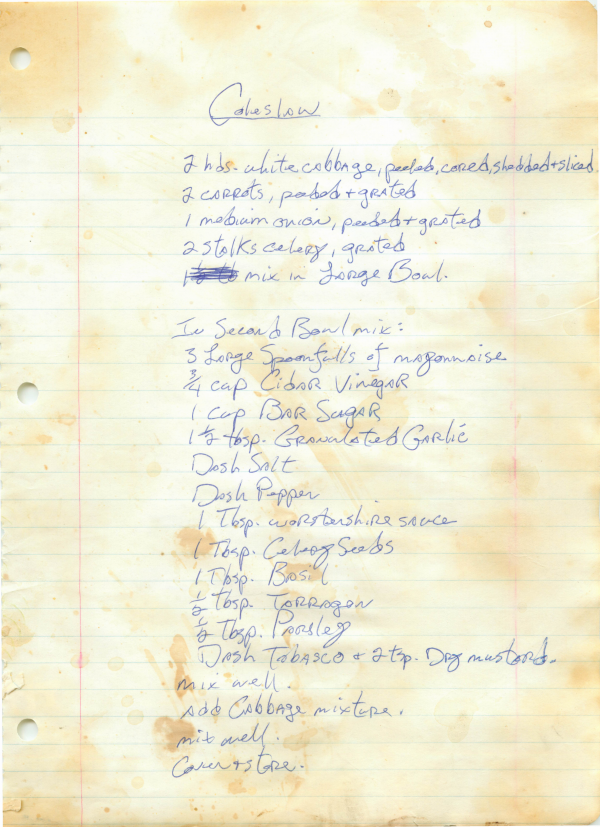 Coleslaw
2 hds. white cabbage, peeled, cored, shedded + sliced
2 carrots, peeled + grated
1 medium onion, peeled + grated
2 stalks celery, grated
mix in Large Bowl.
In Second Bowl mix:
3 Large Spoonfulls of mayonnaise
3/4 cup Cidar Vinegar
1 cup BAR SUGAR
1 1/2 tbsp. Granulated Garlic
Dash Salt
Dash Pepper
1 Tbsp. worstershire sauce
1 Tbsp. Celery Seeds
1 Tbsp. Basil
1/2 Tbsp. Tarragon
1/2 Tbsp. Parsley
Dash Tobasco + 2 tsp. Dry mustard.
mix well.
Add Cabbage mixture.
mix well.
Cover + store.